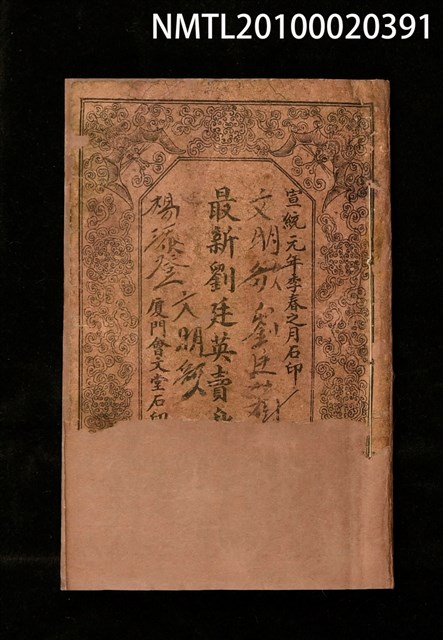 NMTL20100020391
宣統元年季春之月石印
文明歌劉廷英
最新劉廷英賣身
文明歌
楊
廈門會文堂石印